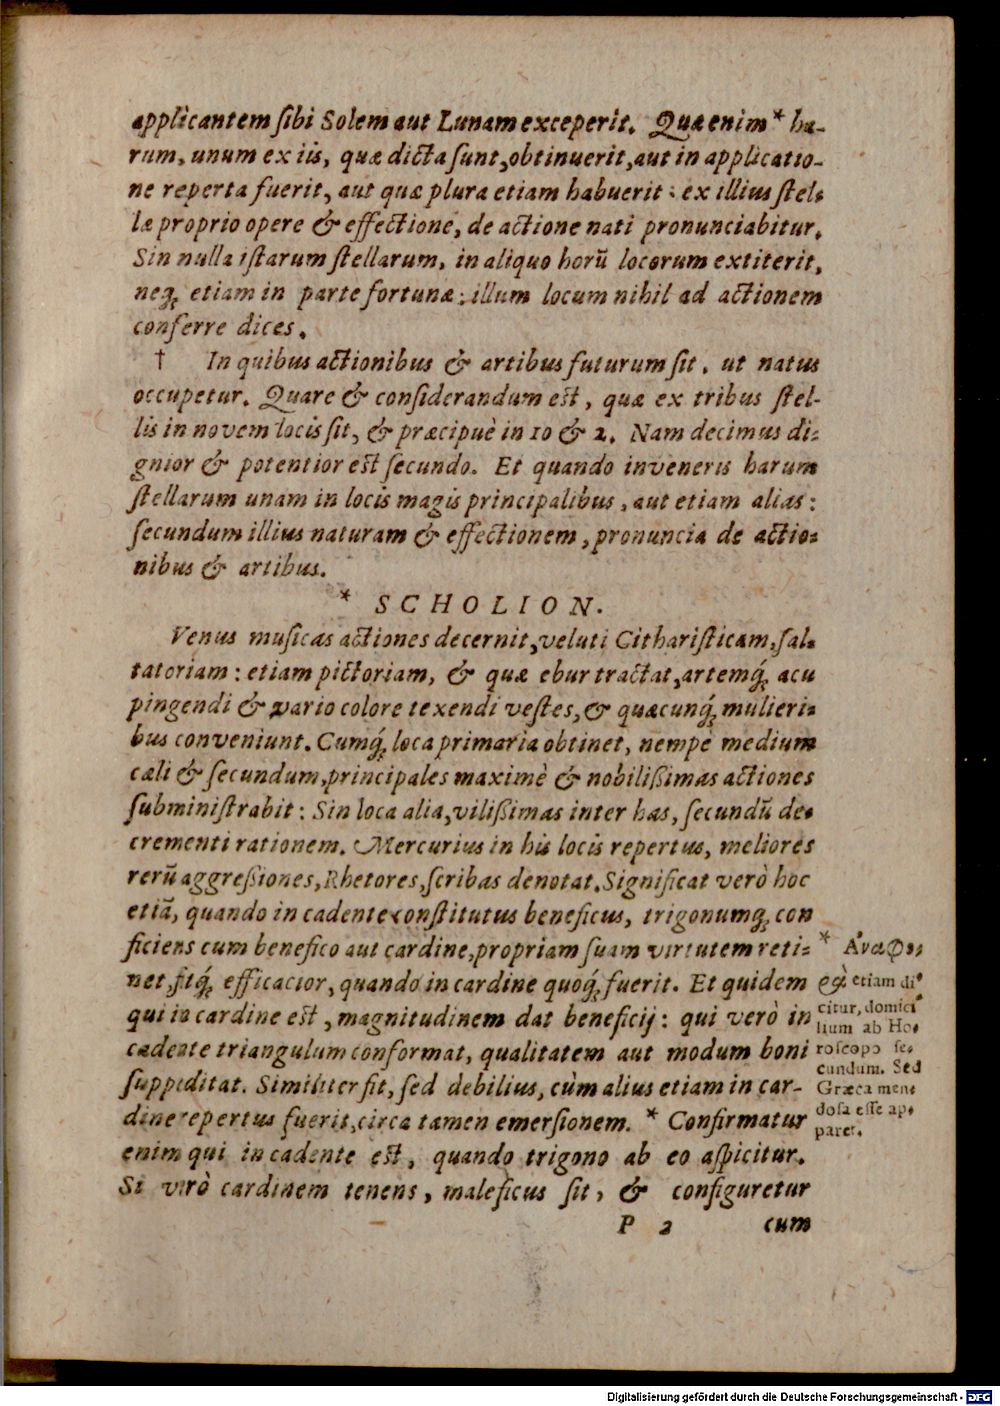 applicantem sibi Solem aut Lunam exceperit. Quæ enim * ha-
rum, unum ex iis, quæ dicta sunt, obtinuerit, aut in applicatio-
ne reperta fuerit, aut quæ plura etiam habuerit: ex illius stel-
læ proprio opere & effectione, de actione nati pronunciabitur.
Sin nulla istarum stellarum, in aliquo horũ locorum extiterit,
neq; etiam in parte fortunæ: illum locum nihil ad actionem
conferre dices.
† In quibus actionibus & artibus futurum sit, ut natus
occupetur. Quare & considerandum est, quæ ex tribus stel-
lis in novem locis sit, & præcipuè in 10 & 2. Nam decimus di-
gnior & potentior est secundo. Et quando inveneris harum
stellarum unam in locis magis principalibus, aut etiam alias:
secundum illius naturam & effectionem, pronuncia de actio-
nibus & artibus.
* SCHOLION.
Venus musicas actiones decernit, veluti Citharisticam, sal-
tatoriam: etiam pictoriam, & quæ ebur tractat, artemq́; acu
pingendi & vario colore texendi vestes, & quæcunq́; mulieri-
bus conveniunt. Cumq́; loca primaria obtinet, nempè medium
cæli & secundum, principales maximè & nobilißimas actiones
subministrabit: Sin loca alia, vilißimas inter has, secundũ de-
crementi rationem. Mercurius in his locis repertus, meliores
rerũ aggreßiones, Rhetores, scribas denotat. Significat verò hoc
etiã, quando in cadente constitutus beneficus, trigonumq; con
ficiens cum benefico aut cardine, propriam suam virtutem reti-
net, fitq́; efficacior, quando in cardine quoq́; fuerit. Et quidem
qui in cardine est, magnitudinem dat beneficij: qui verò in
cadente triangulum conformat, qualitatem aut modum boni
suppeditat. Similiter fit, sed debilius, cùm alius etiam in car-
dine repertus fuerit, circa tamen emersionem. * Confirmatur
enim qui in cadente est, quando trigono ab eo aspicitur.
Si verò cardinem tenens, maleficus sit, & configuretur
P 2 cum
* Ἀναφο-
ρὰ etiam di-
citur, domici
lium ab Ho-
roscopo se-
cundum. Sed
Græca men-
dosa esse ap-
paret.
Digitalisierung gefördert durch die Deutsche Forschungsgemeinschaft - DFG